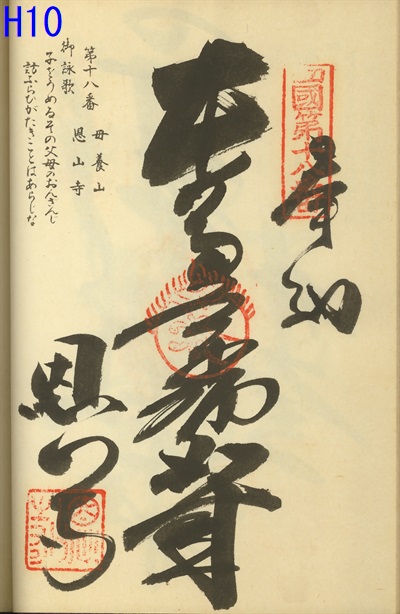 H10
四國第十八番
奉納
本尊薬師尊
恩山寺
第十八番 母養山
御詠歌 恩山寺
子をうめるその父母のおんざんじ
訪ふらひがたきことはあらじな